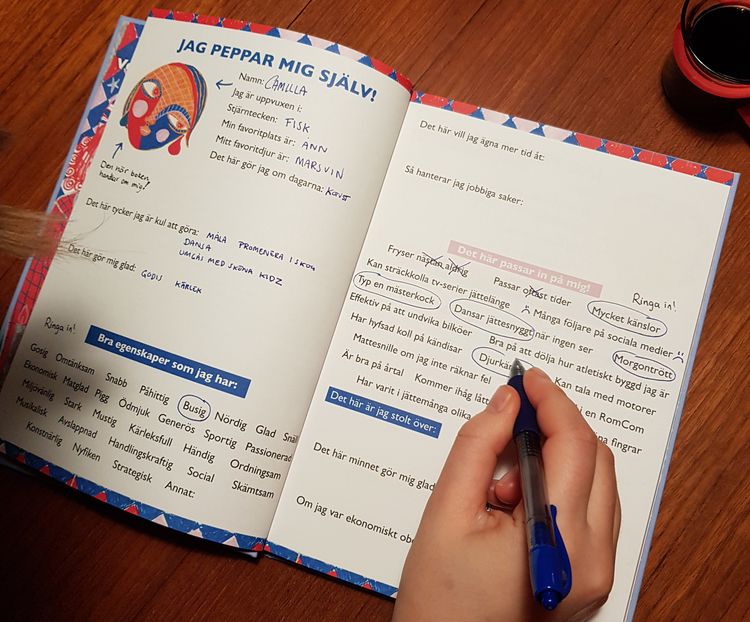 JAG PEPPAR MIG SJÄLV!
Namn: CAMILLA
Jag är uppvuxen i:
Stjärntecken: FISK
Min favoritplats är: ANN
Mitt favoritdjur är: MARSVIN
Det här gör jag om dagarna:
Den här boken
handlar om mig!
Det här tycker jag är kul att göra: MÅLA PROMENERA I SKOG
DANSA
UMGÅS MED SKÖNA KIDZ
Det här gör mig glad:
GODIS KÄRLEK
Ringa in!
Bra egenskaper som jag har:
Gosig Omtänksam Snabb Påhittig Busig Nördig Glad
Ekonomisk Matglad Pigg Ödmjuk Generös Sportig Passionerad
Miljövänlig Stark Mustig Kärleksfull Händig Ordningsam
Musikalisk Avslappnad Handlingskraftig Social Skämtsam
Konstnärlig Nyfiken Strategisk Annat:
Det här vill jag ägna mer tid åt:
Så hanterar jag jobbiga saker:
Det här passar in på mig!
Ringa in!
Fryser nästan aldrig Passar oftast tider Mycket känslor
Kan sträckkolla tv-serier jättelänge Många följare på sociala medier
Typ en mästerkock Dansar jättesnyggt när ingen ser Morgontrött
Effektiv på att undvika bilköer Bra på att dölja hur atletiskt byggd jag är
Har hyfsad koll på kändisar Djurkär Kan tala med motorer
Mattesnille om jag inte räknar fel i en RomCom
Är bra på årtal Kommer ihåg fingrar
Har varit i jättemånga olika
Det här är jag stolt över:
Det här minnet gör mig glad
Om jag var ekonomiskt